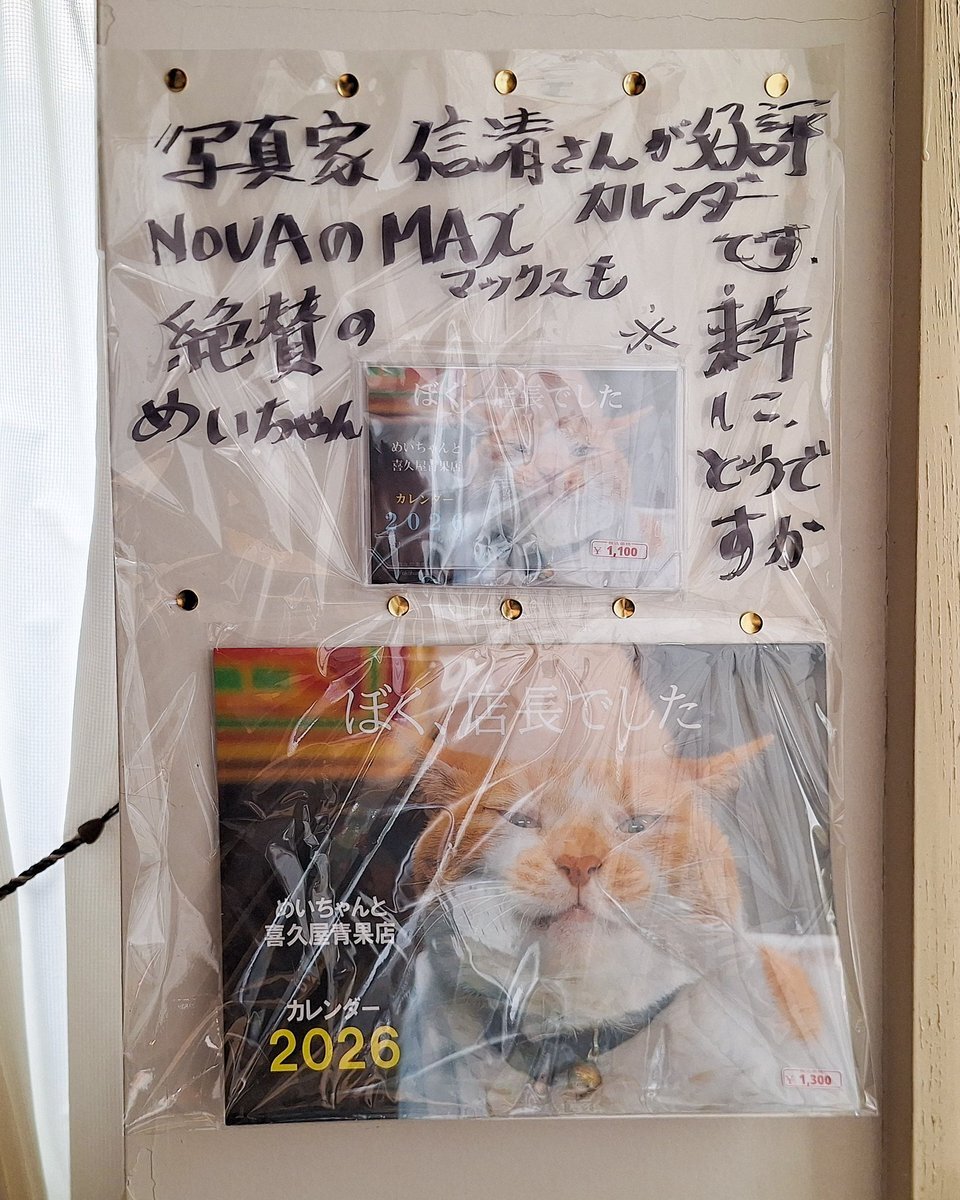 〃写真家 信清さんが好評
カレンダー
NOVAのMAX
マックスも
です.
絶賛の
めいちゃん
※
来年
に、
どうで
すか
ぼく、店長でした
めいちゃんと
喜久屋青果店
カレンダー
2026
¥1,100
ぼく、店長でした
めいちゃんと
喜久屋青果店
カレンダー
2026
¥1,300